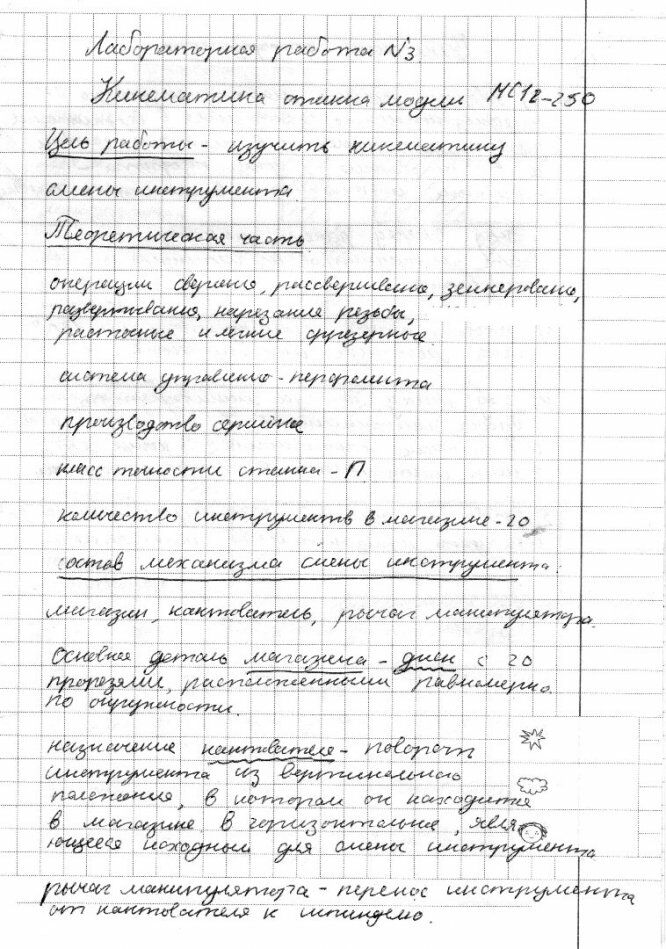 Лабораторная работа №3
Кинематика станка модели МС12-250
Цель работы - изучить кинематику
смены инструмента.
Теоретическая часть
операции сверления, рассверливание, зенкерование,
развертывания, нарезание резьбы,
расточные и легкие фрезерные
система управления -
производство серийное
класс точности станка - П
количество инструментв в магазине - 20
состав механизма смены инструмента.
магазин, кантователь, рычаг манипулятора.
Основная деталь магазина - диск с 20
прорезями, расположенными равномерно
по окружности.
назначение кантователя - поворот
инструмента из вертикального
положения, в котором он находится
в магазине в горизонтальное, явля-
ющееся исходным для смены инструмента
рычаг манипулятора - перенос инструмента
от кантователя к шпинделю.